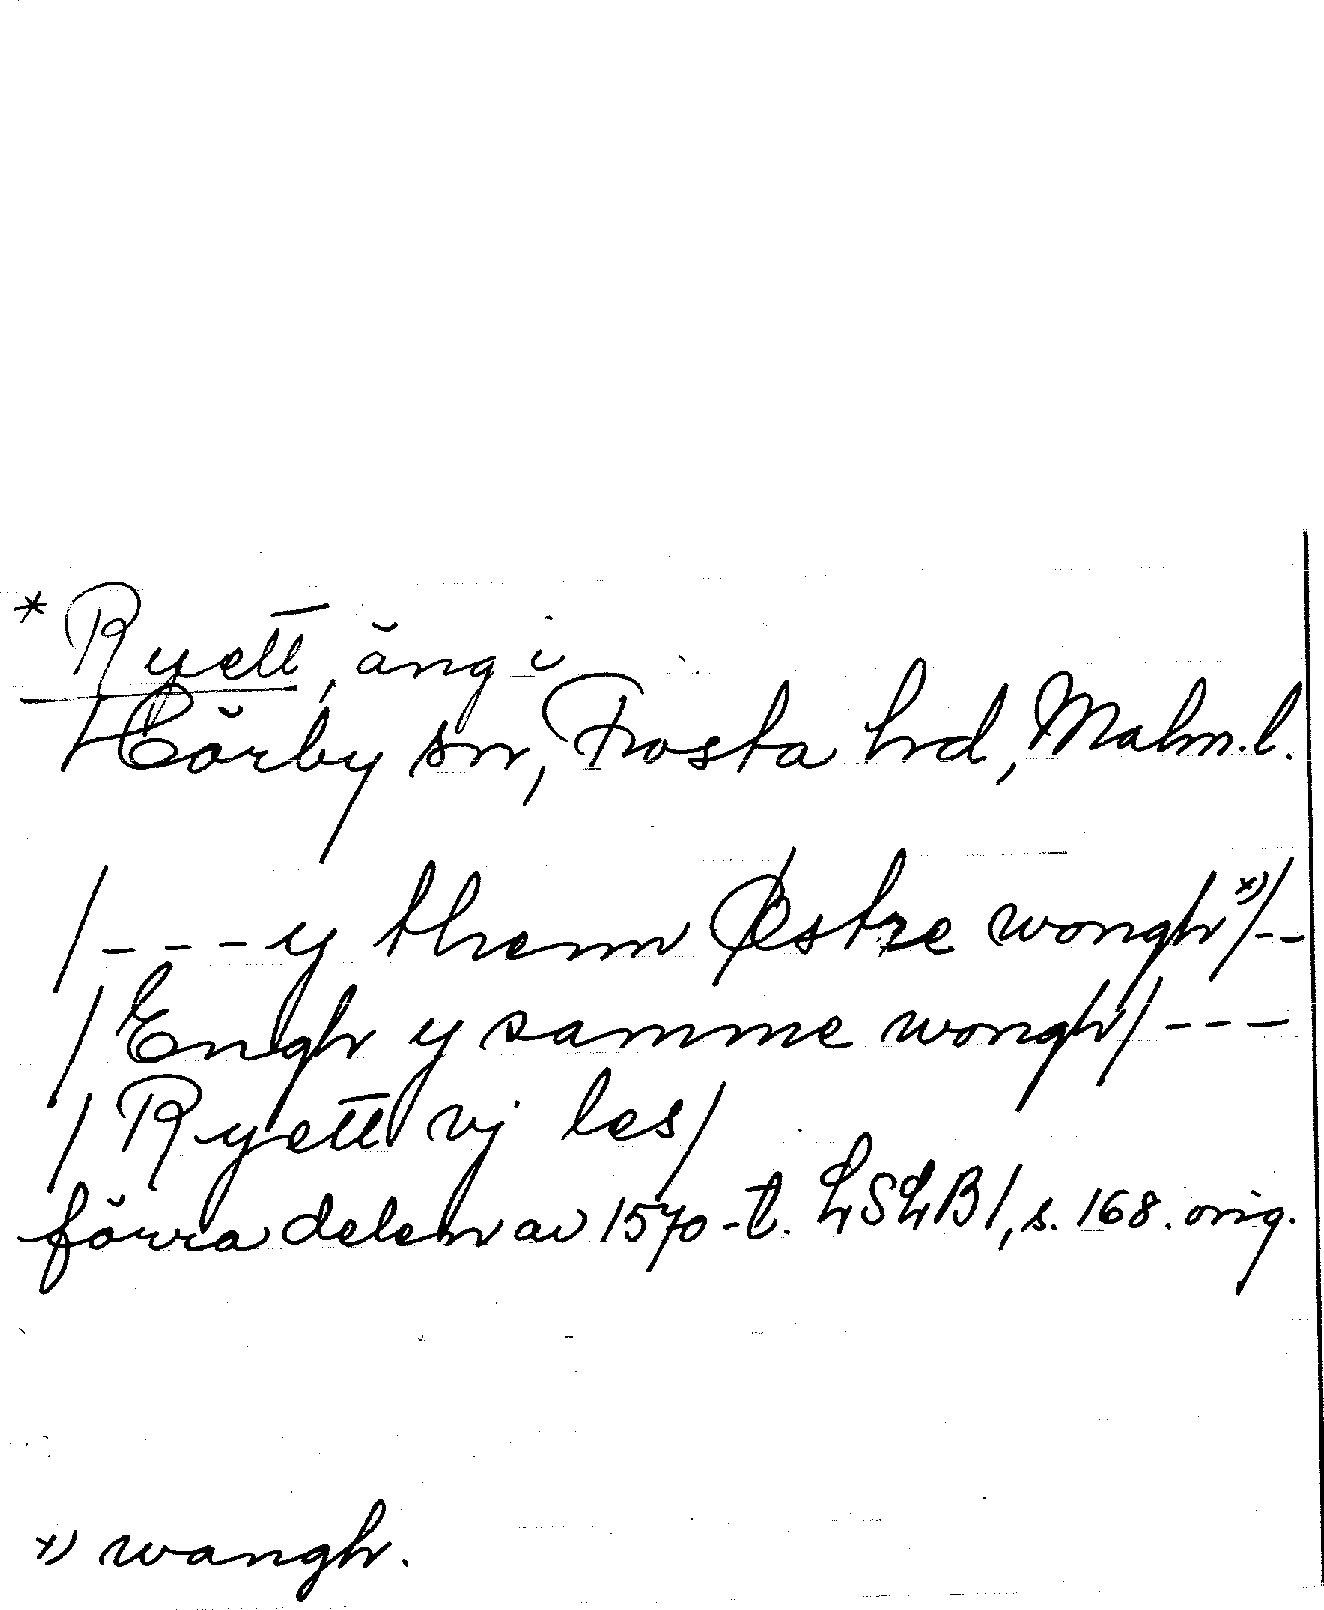 * Ryett, äng i
Hörby sn, Frosta hd, Malm. l.
/---y them Østre wongh*)/--
/Engh y samme wongh/---
/Ryett vj les/
förra delen av 1570-t. LSLB1, s. 168. orig.
*) wangh.